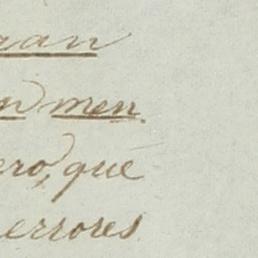 ran
n men.
ero, que
errores